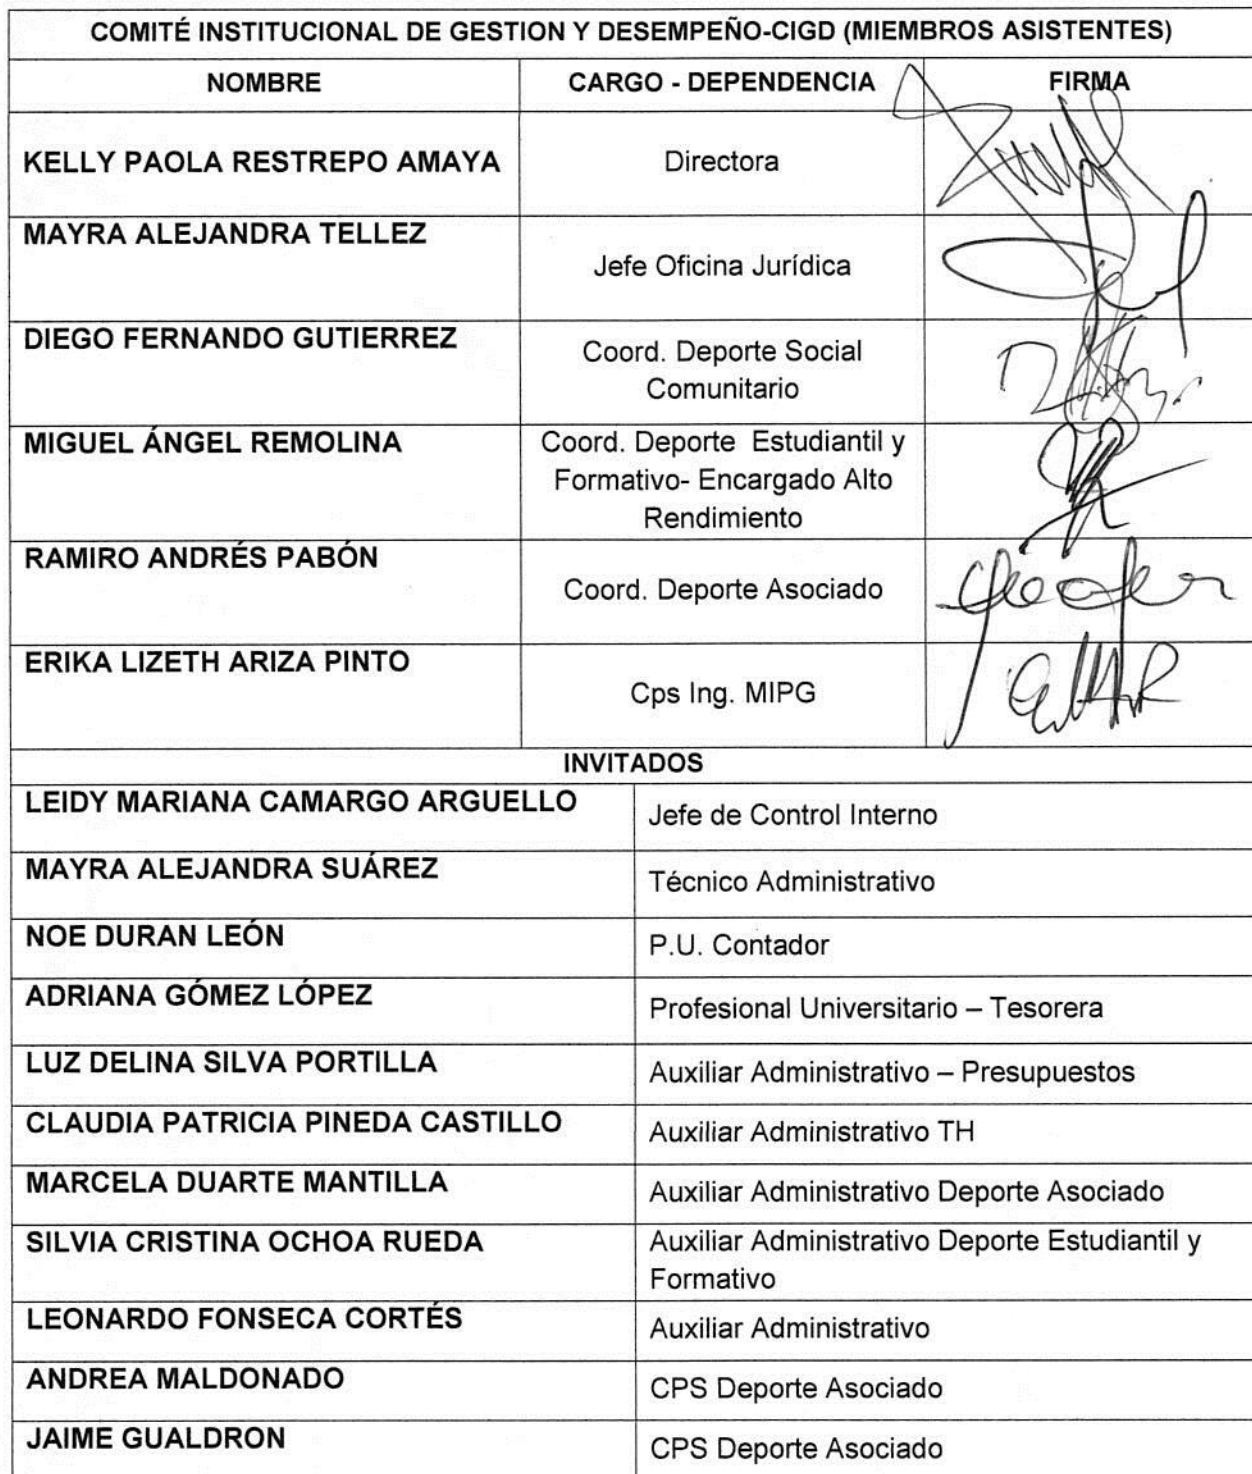 COMITÉ INSTITUCIONAL DE GESTION Y DESEMPEÑO-CIGD (MIEMBROS ASISTENTES)
NOMBRE CARGO - DEPENDENCIA FIRMA
KELLY PAOLA RESTREPO AMAYA Directora
MAYRA ALEJANDRA TELLEZ Jefe Oficina Jurídica
DIEGO FERNANDO GUTIERREZ Coord. Deporte Social
Comunitario
MIGUEL ÁNGEL REMOLINA Coord. Deporte Estudiantil y
Formativo- Encargado Alto
Rendimiento
RAMIRO ANDRÉS PABÓN Coord. Deporte Asociado
ERIKA LIZETH ARIZA PINTO Cps Ing. MIPG
INVITADOS
LEIDY MARIANA CAMARGO ARGUELLO Jefe de Control Interno
MAYRA ALEJANDRA SUÁREZ Técnico Administrativo
NOE DURAN LEÓN P.U. Contador
ADRIANA GÓMEZ LÓPEZ Profesional Universitario – Tesorera
LUZ DELINA SILVA PORTILLA Auxiliar Administrativo – Presupuestos
CLAUDIA PATRICIA PINEDA CASTILLO Auxiliar Administrativo TH
MARCELA DUARTE MANTILLA Auxiliar Administrativo Deporte Asociado
SILVIA CRISTINA OCHOA RUEDA Auxiliar Administrativo Deporte Estudiantil y
Formativo
LEONARDO FONSECA CORTÉS Auxiliar Administrativo
ANDREA MALDONADO CPS Deporte Asociado
JAIME GUALDRON CPS Deporte Asociado